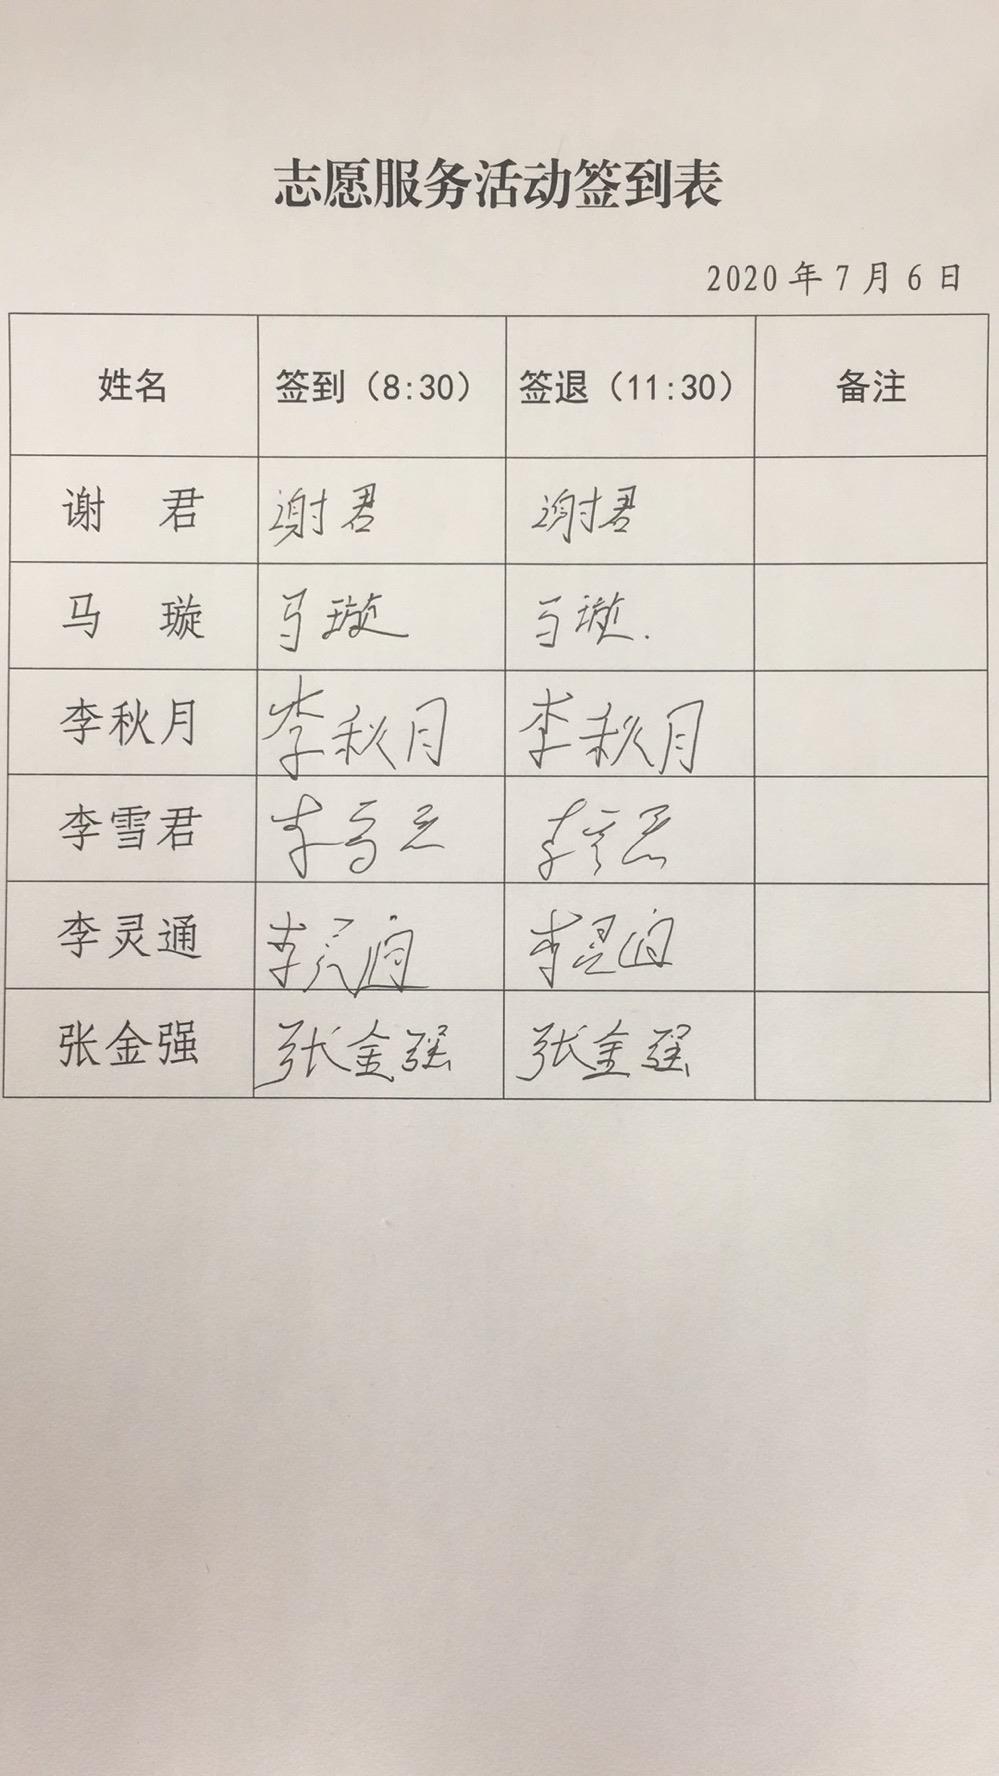 志愿服务活动签到表
2020年7月6日
姓名 签到（8:30） 签退（11:30） 备注
谢 君 谢君 谢君
马 璇 马璇 马璇.
李秋月 李秋月 李秋月
李雪君 李雪君 李雪君
李灵通 李灵通 李灵通
张金强 张金强 张金强